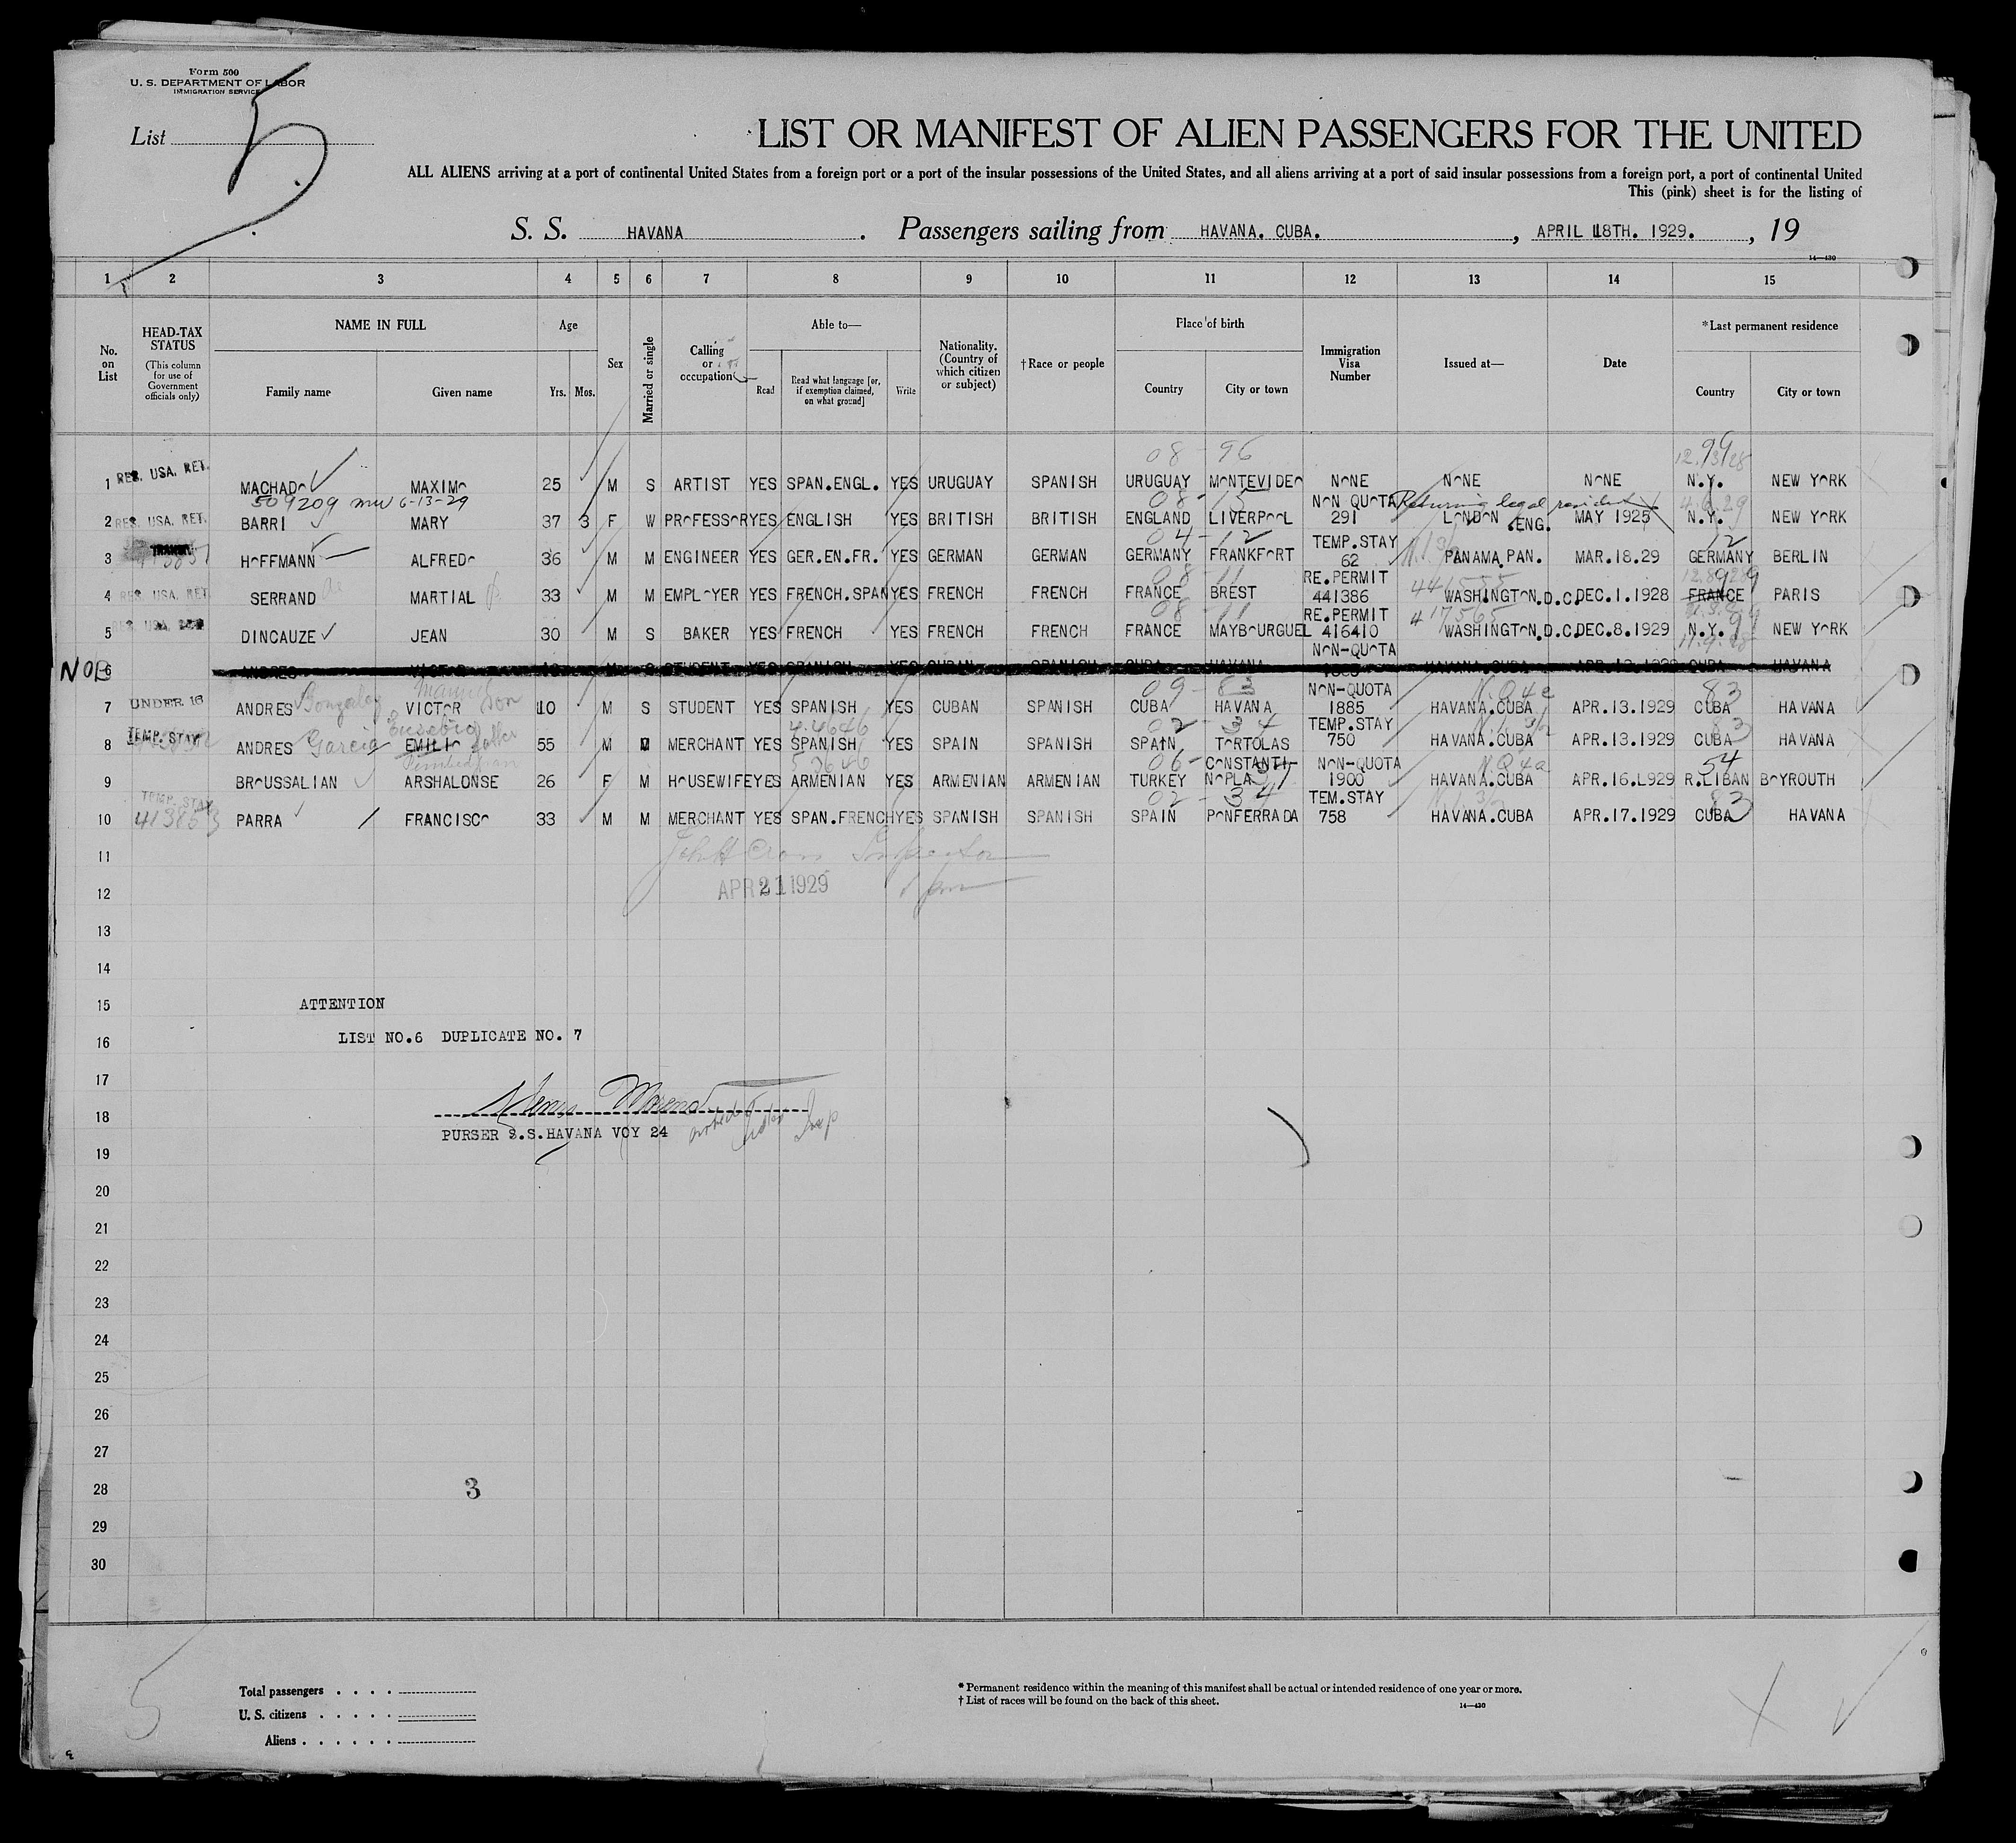 Form 500
U. S. DEPARTMENT OF LABOR
IMMIGRATION SERVICE
List 5
LIST OR MANIFEST OF ALIEN PASSENGERS FOR THE UNITED
ALL ALIENS arriving at a port of continental United States from a foreign port or a port of the insular possessions of the United States, and all aliens arriving at a port of said insular possessions from a foreign port, a port of continental United
This (pink) sheet is for the listing of
S. S. HAVANA . Passengers sailing from HAVANA. CUBA. , APRIL 18TH. 1929. , 19
14—430
1 2 3 4 5 6 7 8 9 10 11 12 13 14 15
No. on List
HEAD-TAX STATUS (This column for use of Government officials only)
NAME IN FULL Family name Given name
Age Yrs. Mos.
Sex
Married or single
Calling or occupation
Able to— Read Read what language [or, if exemption claimed, on what ground] Write
Nationality. (Country of which citizen or subject)
†Race or people
Place of birth Country City or town
Immigration Visa Number
Issued at—
Date
*Last permanent residence Country City or town
08 - 96 99
12.13.28
1 RES. USA. RET. MACHADO MAXIMO 25 M S ARTIST YES SPAN.ENGL. YES URUGUAY SPANISH URUGUAY MONTEVIDEO NONE NONE NONE N.Y. NEW YORK
509209 mw 6-13-29 08 - 15 NON QUOTA Returning legal resident 4.6.29
2 RES. USA. RET. BARRI MARY 37 3 F W PROFESSOR YES ENGLISH YES BRITISH BRITISH ENGLAND LIVERPOOL 291 LONDON ENG. MAY 1925 N.Y. NEW YORK
04 - 12 TEMP.STAY 12
3 TRANSIT HOFFMANN ALFREDO 36 M M ENGINEER YES GER.EN.FR. YES GERMAN GERMAN GERMANY FRANKFORT 62 PANAMA PAN. MAR.18.29 GERMANY BERLIN
08 11 RE.PERMIT
4 RES. USA. RET. SERRAND MARTIAL 33 M M EMPLOYER YES FRENCH.SPAN YES FRENCH FRENCH FRANCE BREST 441386 WASHINGTON.D.C. DEC.1.1928 FRANCE PARIS
08 - 11 RE.PERMIT 417565
5 DINCAUZE JEAN 30 M S BAKER YES FRENCH YES FRENCH FRENCH FRANCE MAYBOURGUEL 416410 WASHINGTON.D.C. DEC.8.1929 N.Y. NEW YORK
NON-QUOTA 11.9.28
NOB 6 ANDRES VICTOR 10 M S STUDENT YES SPANISH YES CUBAN SPANISH CUBA HAVANA 1885 HAVANA.CUBA APR.13.1929 CUBA HAVANA
09 - 83 NON-QUOTA 83
7 UNDER 16 ANDRES Gonzalez VICTOR Manuel son 10 M S STUDENT YES SPANISH YES CUBAN SPANISH CUBA HAVANA 1885 HAVANA.CUBA APR.13.1929 CUBA HAVANA
Eusebio 02 - 34 TEMP.STAY
8 TEMP. STAY ANDRES Garcia EMILIO father 55 M M MERCHANT YES SPANISH YES SPAIN SPANISH SPAIN TORTOLAS 750 HAVANA.CUBA APR.13.1929 CUBA HAVANA
06 - CONSTANTI- NON-QUOTA 54
9 BROUSSALIAN ARSHALONSE 26 F M HOUSEWIFE YES ARMENIAN YES ARMENIAN ARMENIAN TURKEY NOPLA 1900 HAVANA.CUBA APR.16.L929 R.LIBAN BOYROUTH
TEMP. STAY 02 - 34 TEM.STAY 83
10 PARRA FRANCISCO 33 M M MERCHANT YES SPAN.FRENCH YES SPANISH SPANISH SPAIN PONFERRADA 758 HAVANA.CUBA APR.17.1929 CUBA HAVANA
11
12 APR 21 1929
13
14
15 ATTENTION
16 LIST NO.6 DUPLICATE NO. 7
17
18
PURSER S.S.HAVANA VOY 24
19
20
21
22
23
24
25
26
27
28 3
29
30
5
Total passengers . . . .
U. S. citizens . . . . .
Aliens . . . . . .
* Permanent residence within the meaning of this manifest shall be actual or intended residence of one year or more.
† List of races will be found on the back of this sheet.
14—430